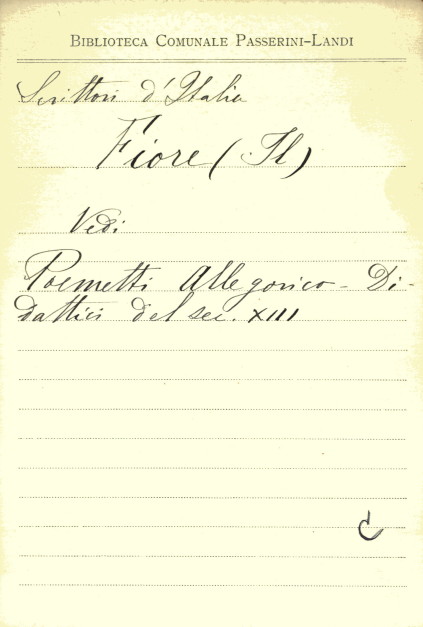 BIBLIOTECA COMUNALE PASSERINI-LANDI
Scrittori d'Italia
Fiore (Il)
Vedi
Poemetti Allegorico-Di-
dattici del sec. XIII
C